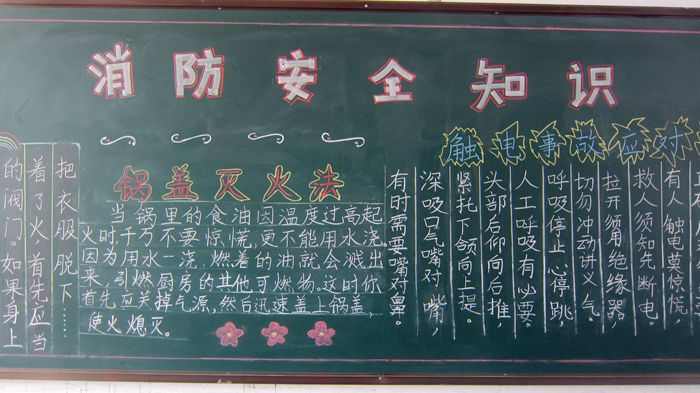 消防安全知识
触电事故应对
有人触电莫惊慌，
救人须知先断电。
拉开须用绝缘器，
切勿冲动讲义气。
呼吸停止心停跳，
人工呼吸有必要。
头部后仰向后推，
紧托下颌向上提。
深吸口气嘴对嘴，
有时需要嘴对鼻。
锅盖灭火法
当锅里的食油因温度过高起
火时，千万不要惊慌，更不能用水浇。
因为用水一浇，燃着的油就会溅出
来，引燃厨房的其他可燃物。这时你
首先应关掉气源，然后迅速盖上锅盖
使火熄灭。
把衣服脱下……
着了火，首先应当
的阀门。如果身上